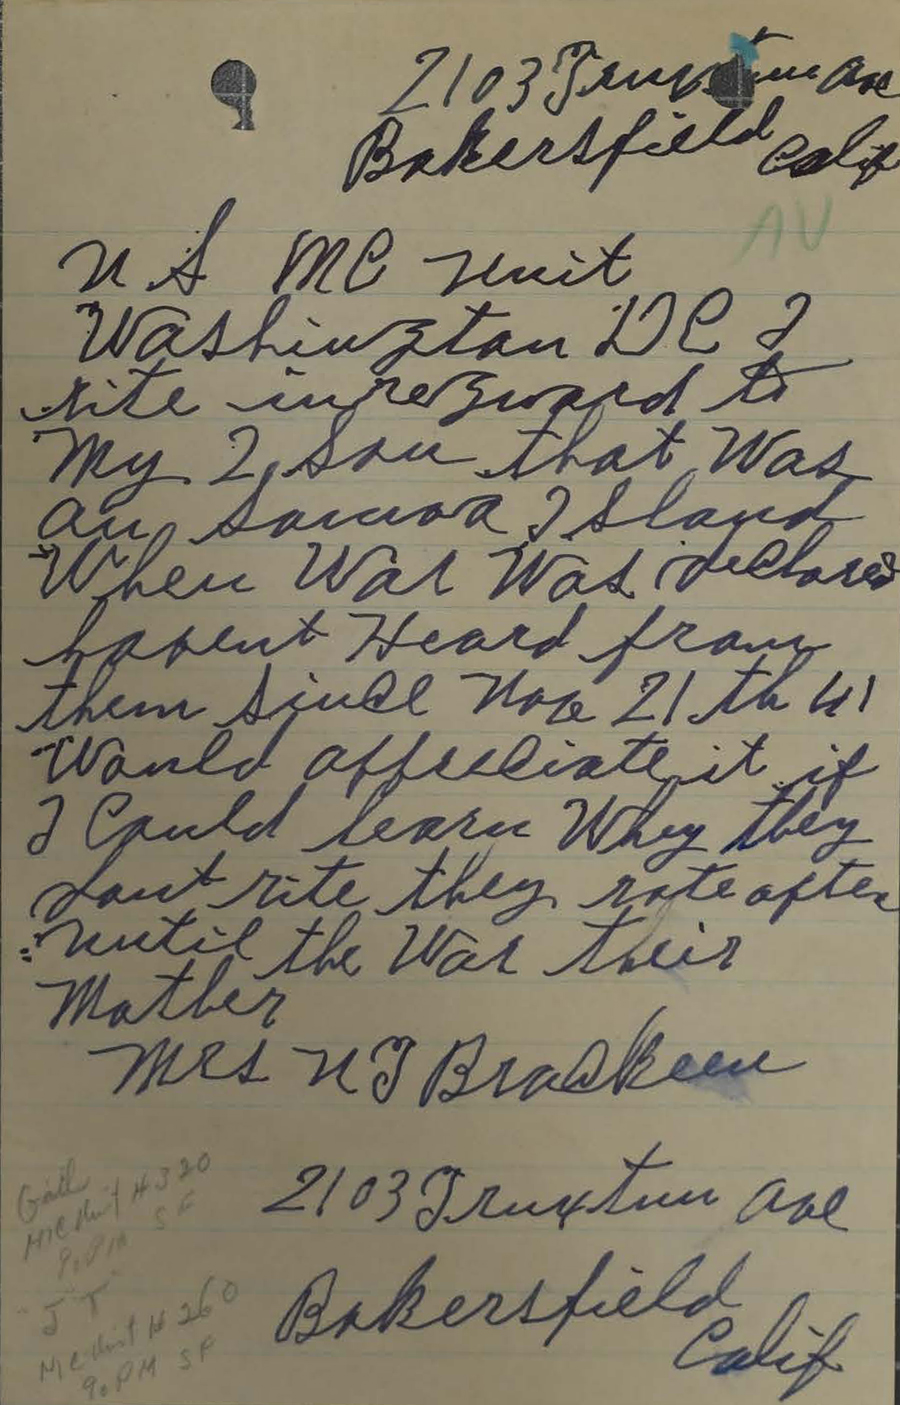 2103 Truxtun ave
Bakersfield Calif
AV
U S MC Unit
Washington DC I
rite inregward to
My 2 Son that Was
on Samoa ISland
When War Was declared
havent Heard from
them Since Nov 21 th 41
Would appreciate it if
I Could learn Whey they
dont rite they rote often
until the War their
Mother
MRS N T BraCKeen
2103 Truxtun ave
Bakersfield
Calif
MC Unit # 320
9. PM SF
"J T"
MC Unit # 260
9. PM SF